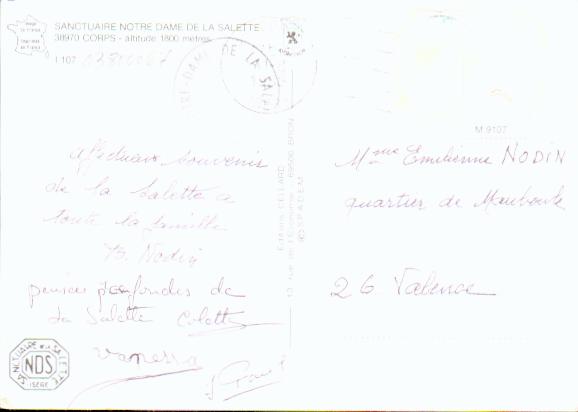 SANCTUAIRE NOTRE DAME DE LA SALETTE
38970 CORPS - altitude 1800 mètres
I 107
NOTRE-DAME DE LA SALETTE
M 9107
Editions CELLARD
13 rue de l'Economie 69500 BRON
©SPADEM
affectueux souvenir
de la Salette a
toute la famille
B. Nodin
pensées profondes de
La Salette Colette
Vanessa
Mme Emilienne NODIN
quartier de
26 Valence
SANCTUAIRE DE LA SALETTE
NDS
ISERE